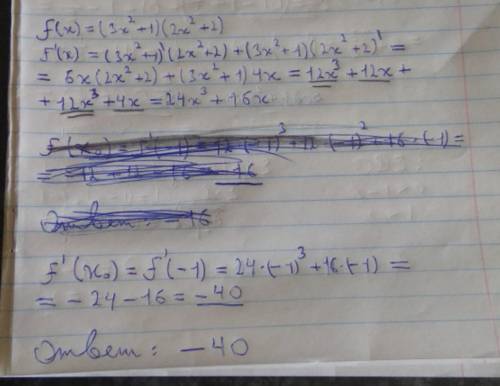 f(x) = (3x²+1)(2x²+2)
f'(x) = (3x²+1)'(2x²+2)+(3x²+1)(2x²+2)' =
= 6x(2x²+2)+(3x²+1)4x = 12x³+12x+
+12x³+4x = 24x³+16x
f'(x₀) = f'(-1) = 24·(-1)³+16·(-1) =
= -24-16 = -40
Ответ: -40